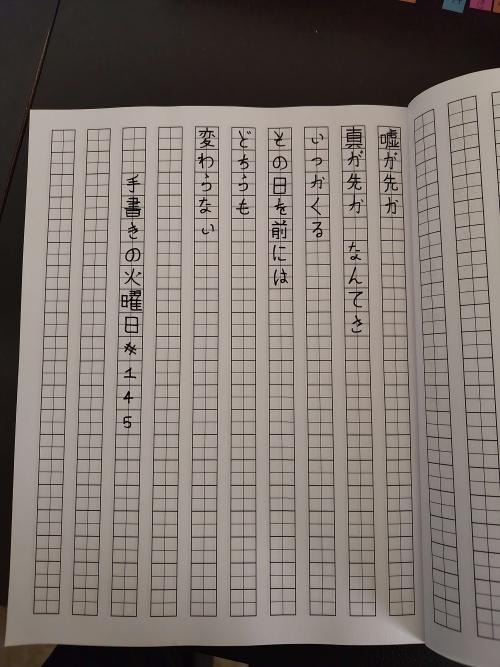 嘘が先か
真が先か なんてさ
いつかくる
その日を前には
どちらも
変わらない
手書きの火曜日#145